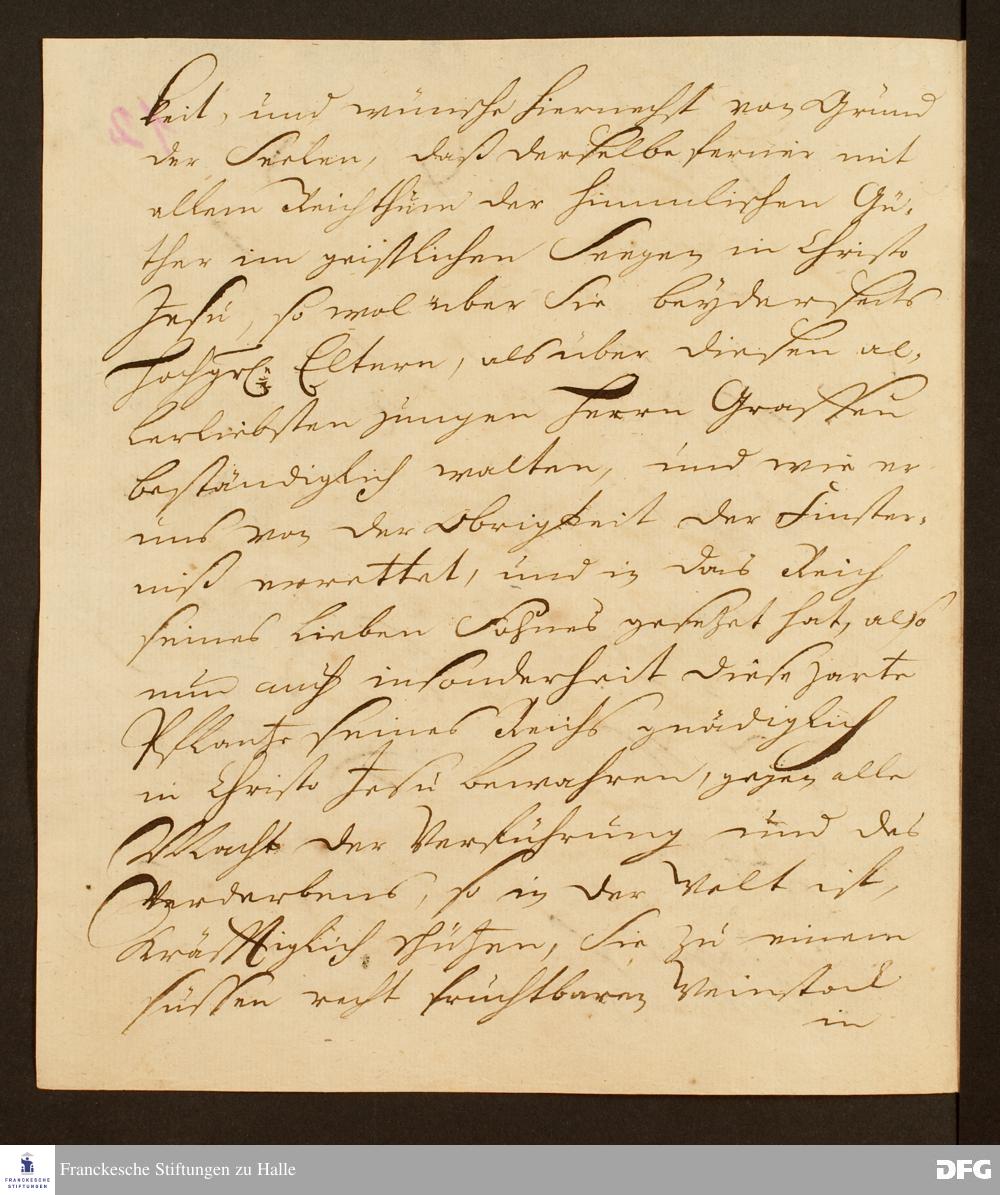 keit, und wünsche hiernechst von Grund
der Seelen, daß derselbe ferner mit
allem Reichthum der himmlischen Gü-
ther im geistlichen Seegen in Christo
Jesu, so wol über Sie beyderseits
Hochgrfl. Eltern, als über diesen al-
lerliebsten jungen Herrn Graffen
beständiglich walten, und wie er
uns von der Obrigkeit der Finster-
niß errettet, und in das Reich
seines lieben Sohnes gesetzet hat, also
nun auch insonderheit diese zarte
Pflantze seines Reichs gnädiglich
in Christo Jesu bewahren, gegen alle
Macht der Verführung und des
Verderbens, so in der Welt ist,
kräfftiglich schützen, sie zu einem
süssen recht fruchtbaren Weinstock
in
Franckesche Stiftungen zu Halle
FRANCKESCHE
STIFTUNGEN
DFG